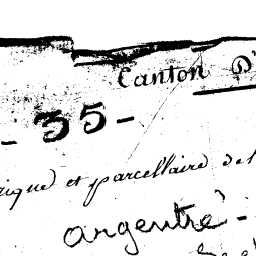 Canton D'
- 35 -
rique et parcellaire de l
argentré -